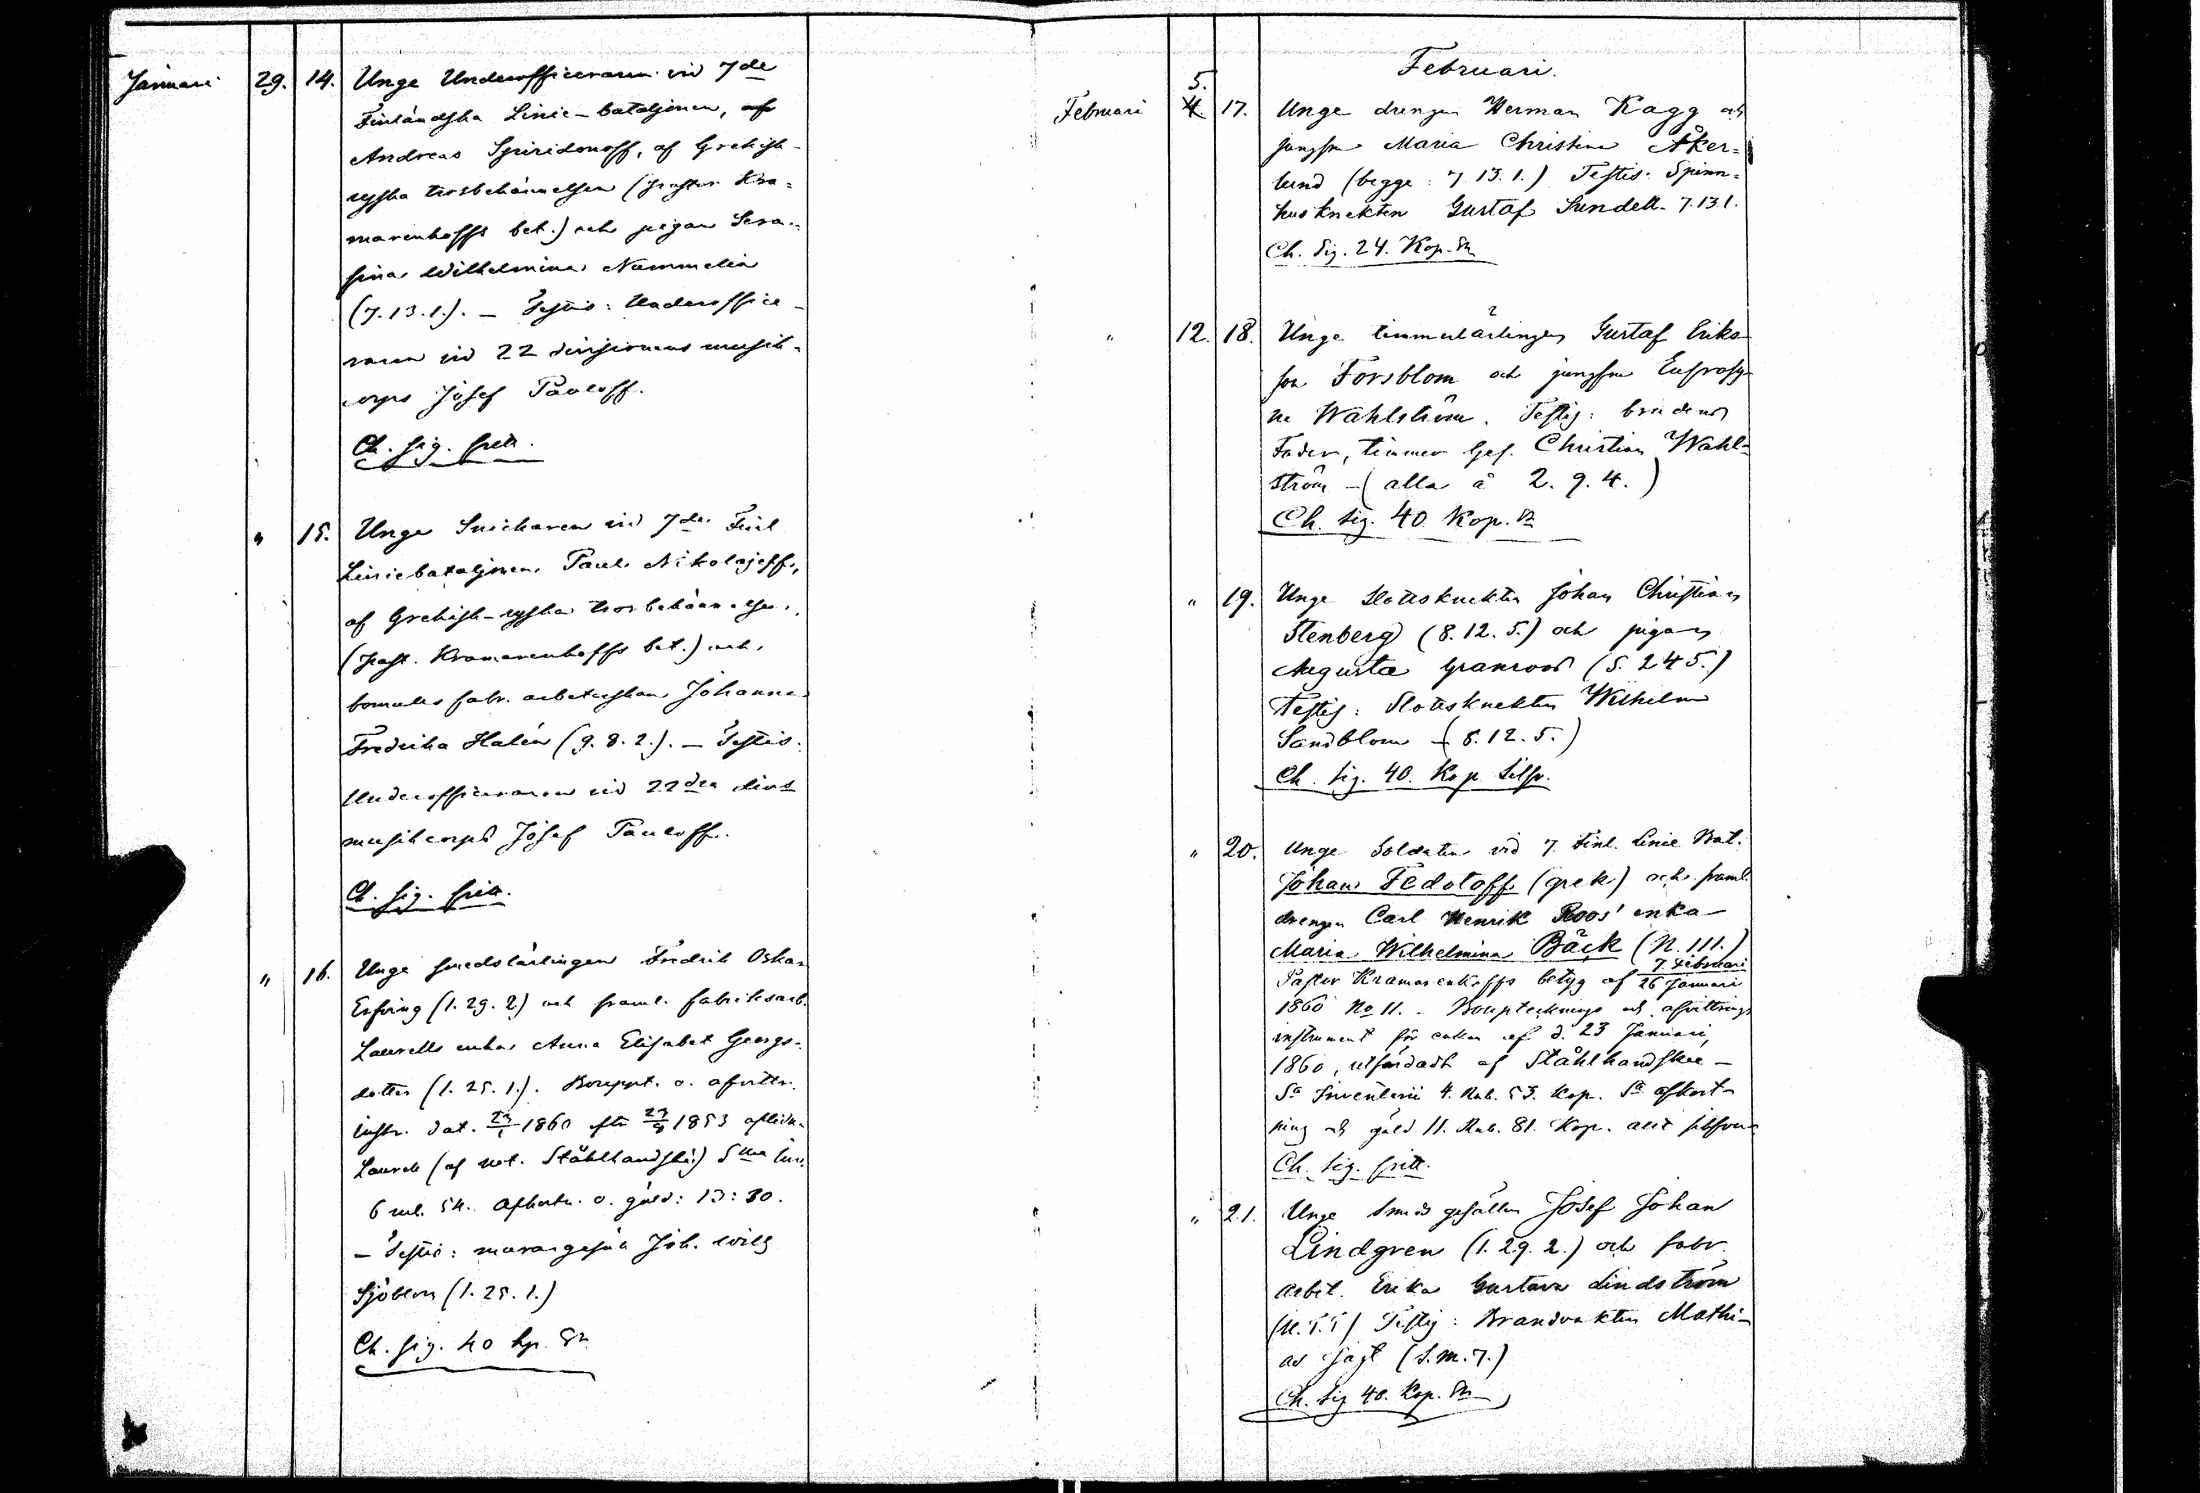 Januari 29. 14. Unge Underofficeraren vid 7de
Finländska Linie-bataljonen, af
Andreas Spiridonoff, af Grekisk-
ryska trosbekännelsen (pastor Kra-
marenkoffs bet.) och pigan Sera-
fina Wilhelmina Nummelin
(7.13.1.). – Testis: Underoffice-
raren vid 22 divisionens musik-
corps Josef Pauloff.
Ch. sig. fritt.
" 15. Unge Snickaren vid 7de Finl
Liniebataljonen, Paul Nikolajeff,
af Grekisk-ryska trosbekännelsen,
(past. Kramarenkoffs bet.) och
bomulls fabr. arbeterskan Johanna
Fredrika Halén (9.8.2.). – Testis:
Underofficeraren vid 22dra divs
musikcorps Josef Pauloff.
Ch. sig. fritt.
" 16. Unge smedslärlingen Fredrik Oskar
(1.29.2) och framl. fabriksarb.
Laurells enka Anna Elisabet Georgs-
dotter (1.25.1.). Bouppt. o. afvittr.
instr. dat. 1860 efter 1853 aflidn.
Laurell (af not. Ståhlhandske)
6 rul. 54. Afkortn. o. gäld: 13:30.
– Testis: Joh. Wilh
Sjöblom (1.25.1.)
Ch. sig. 40 kp. Sr.
Februari.
Februari 5. 4. 17. Unge drengen Herman Kagg och
jungfrun Maria Christina Åker-
lund (begge: 7.13.1.) Testis: Spinn-
husknekten Gustaf Sundell 7.13.1.
Ch. Sig. 24. Kop. Sr
" 12. 18. Unge timmerlärlingen Gustaf Eriks-
son Forsblom och jungfrun Eufrosy-
ne Wahlström. Testis: brudens
Fader, timmer Ges. Christian Wahl-
ström – (alla å 2.9.4.)
Ch. sig. 40 Kop. Sr
" 19. Unge Slottsknekten Johan Christian
Stenberg (8.12.5.) och pigan
Augusta Granroos (5.245.)
Testis: Slottsknekten Wilhelm
Sandblom – (8.12.5.)
Ch. sig. 40. Kop Silfv.
" 20. Unge Soldaten vid 7. Finl. Linie Bat.
Johan Fedotoff (grek) och framl.
drengen Carl Henrik Roos' enka
Maria Wilhelmina Bäck (N. 111.)
Pastor Kramarenkoffs betyg af 7 Februari 26 Januari
1860 No 11. – Boupptecknings och afvittrings
instrument för enkan af d. 23 Januari,
1860, utfärdadt af Ståhlhandske –
Sa Inventarii 4. Rub. 53. Kop. Sa afkort-
ning och gäld 11. Rub. 81. Kop. allt silfver
Ch. Sig. fritt.
" 21. Unge Smeds gesällen Josef Johan
Lindgren (1.29.2.) och fabr.
arbet. Erika Gustava Lindström
Testis: Brandvakten Mathi-
as Jagt (S.M.7.)
Ch. Sig 40. Kop. Sr